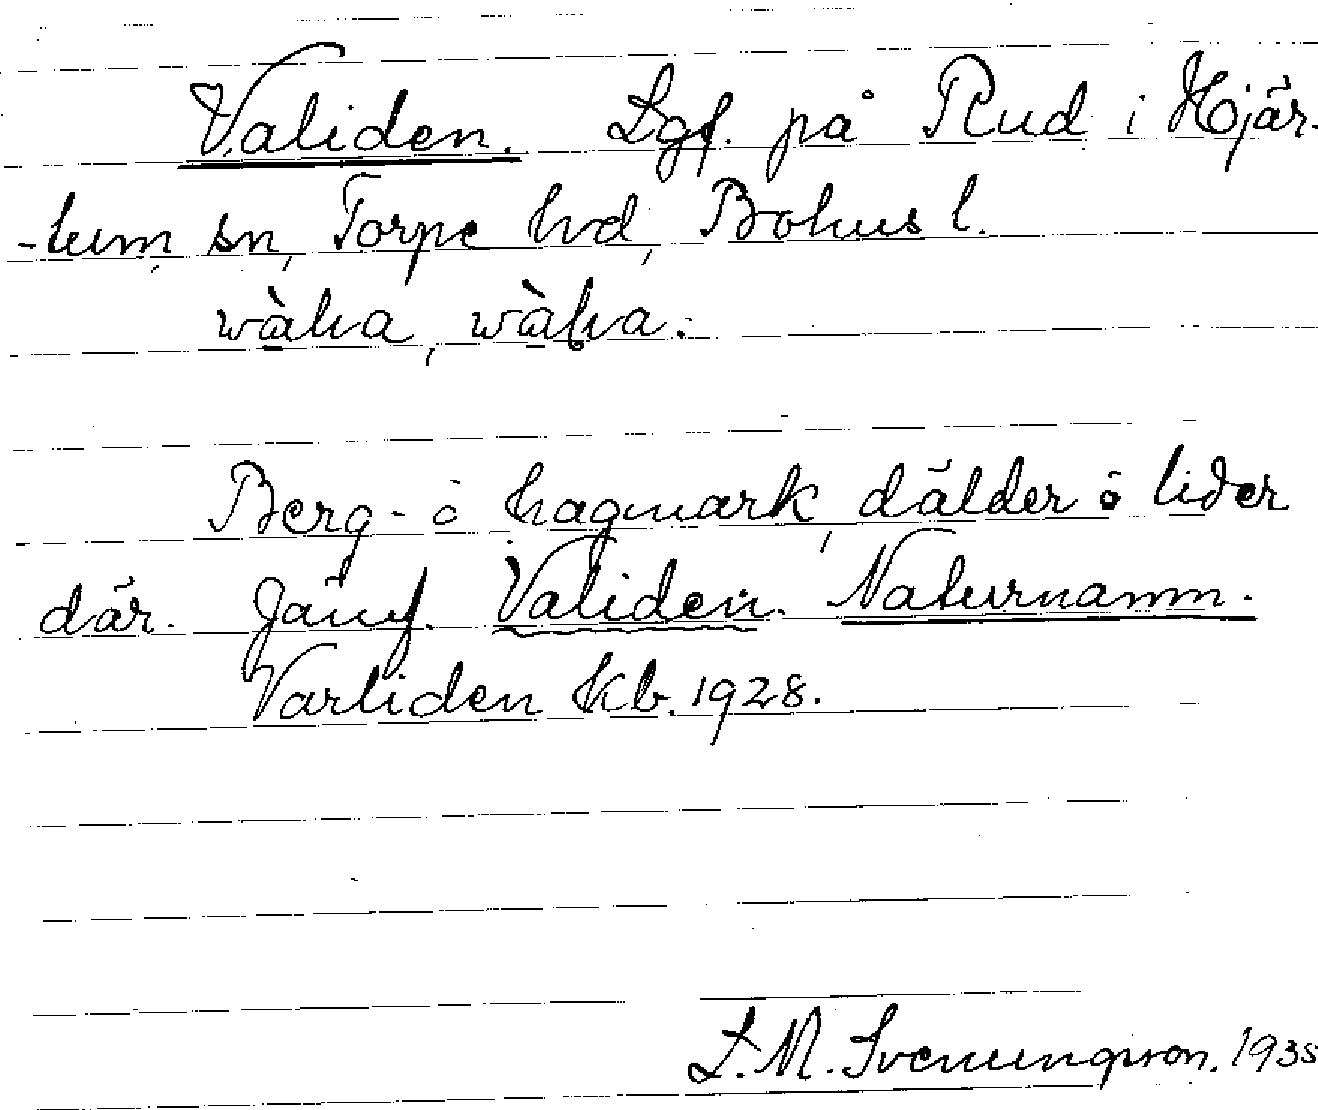 Validen. Lgf. på Rud i Hjär-
-tum sn, Torpe hd, Bohus l.
Berg- o hagmark, dälder o lider
där. Jämf. Validen. Naturnamn.
Varliden Kb. 1928.
L. M. Svenungsson. 1935